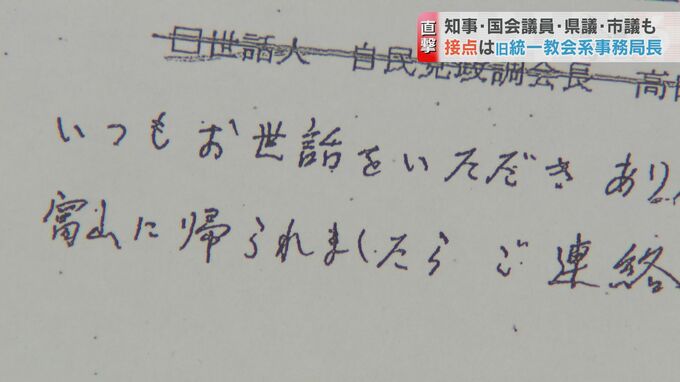 直撃
知事・国会議員・県議・市議も
接点は旧統一教会系事務局長
世話人 自民党政調会長 高
いつもお世話をいただき あり
富山に帰られましたら ご連絡